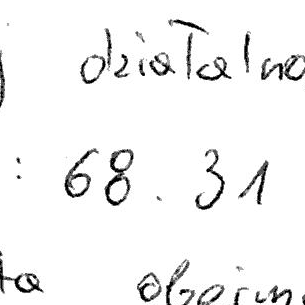 j działalno
: 68.31
ta obejm